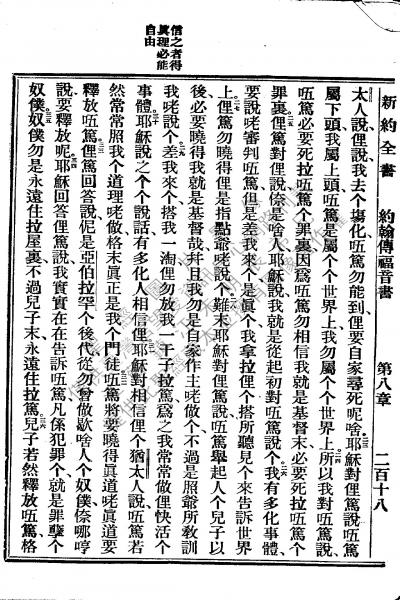 新約全書　約翰傳福音書　第八章　二百十八
信之者得
眞理必能
自由
太人說、俚說我去个塲化、唔篤勿能到、俚要自家尋死呢啥、二三耶穌對俚篤說、唔篤
屬下頭、我屬上頭、唔篤是屬个个世界上、我勿屬个个世界上、二四所以我對唔篤說、
唔篤必要死拉唔篤个罪裏、因爲唔篤勿相信我就是基督末、必要死拉唔篤个
罪裏、二五俚篤對俚說、倷是啥人、耶穌說、我就是從起初對唔篤說个、二六我有多化事體、
要說咾審判唔篤、但是差我來个是眞个、我拿拉俚个搭所聽見个、來告訴世界
上、二七俚篤勿曉得俚是指點爺咾說个、二八難末耶穌對俚篤說、唔篤舉起人个兒子以
後、必要曉得我就是基督哉、幷且我勿是自家作主咾做个、不過是照爺所敎訓
我咾說个、二九差我來个搭我一淘、俚勿放我一干子拉篤、爲之我常常做俚快活个
事體、三十耶穌說之个个說話、有多化人相信俚、三一耶穌對相信俚个猶太人說、唔篤若
然常常照我个道理咾做格末、眞正是我个門徒、三二唔篤將要曉得眞道咾、眞道要
釋放唔篤、三三俚篤回答俚說、伲是亞伯拉罕个後代、從勿曾做歇啥人个奴僕、倷哪哼
說要釋放呢、三四耶穌回答俚篤說、我實實在在告訴唔篤、凡係犯罪个、就是罪孽个
奴僕、三五奴僕勿是永遠住拉屋裏、不過兒子末、永遠住拉篤、三六兒子若然釋放唔篤、格